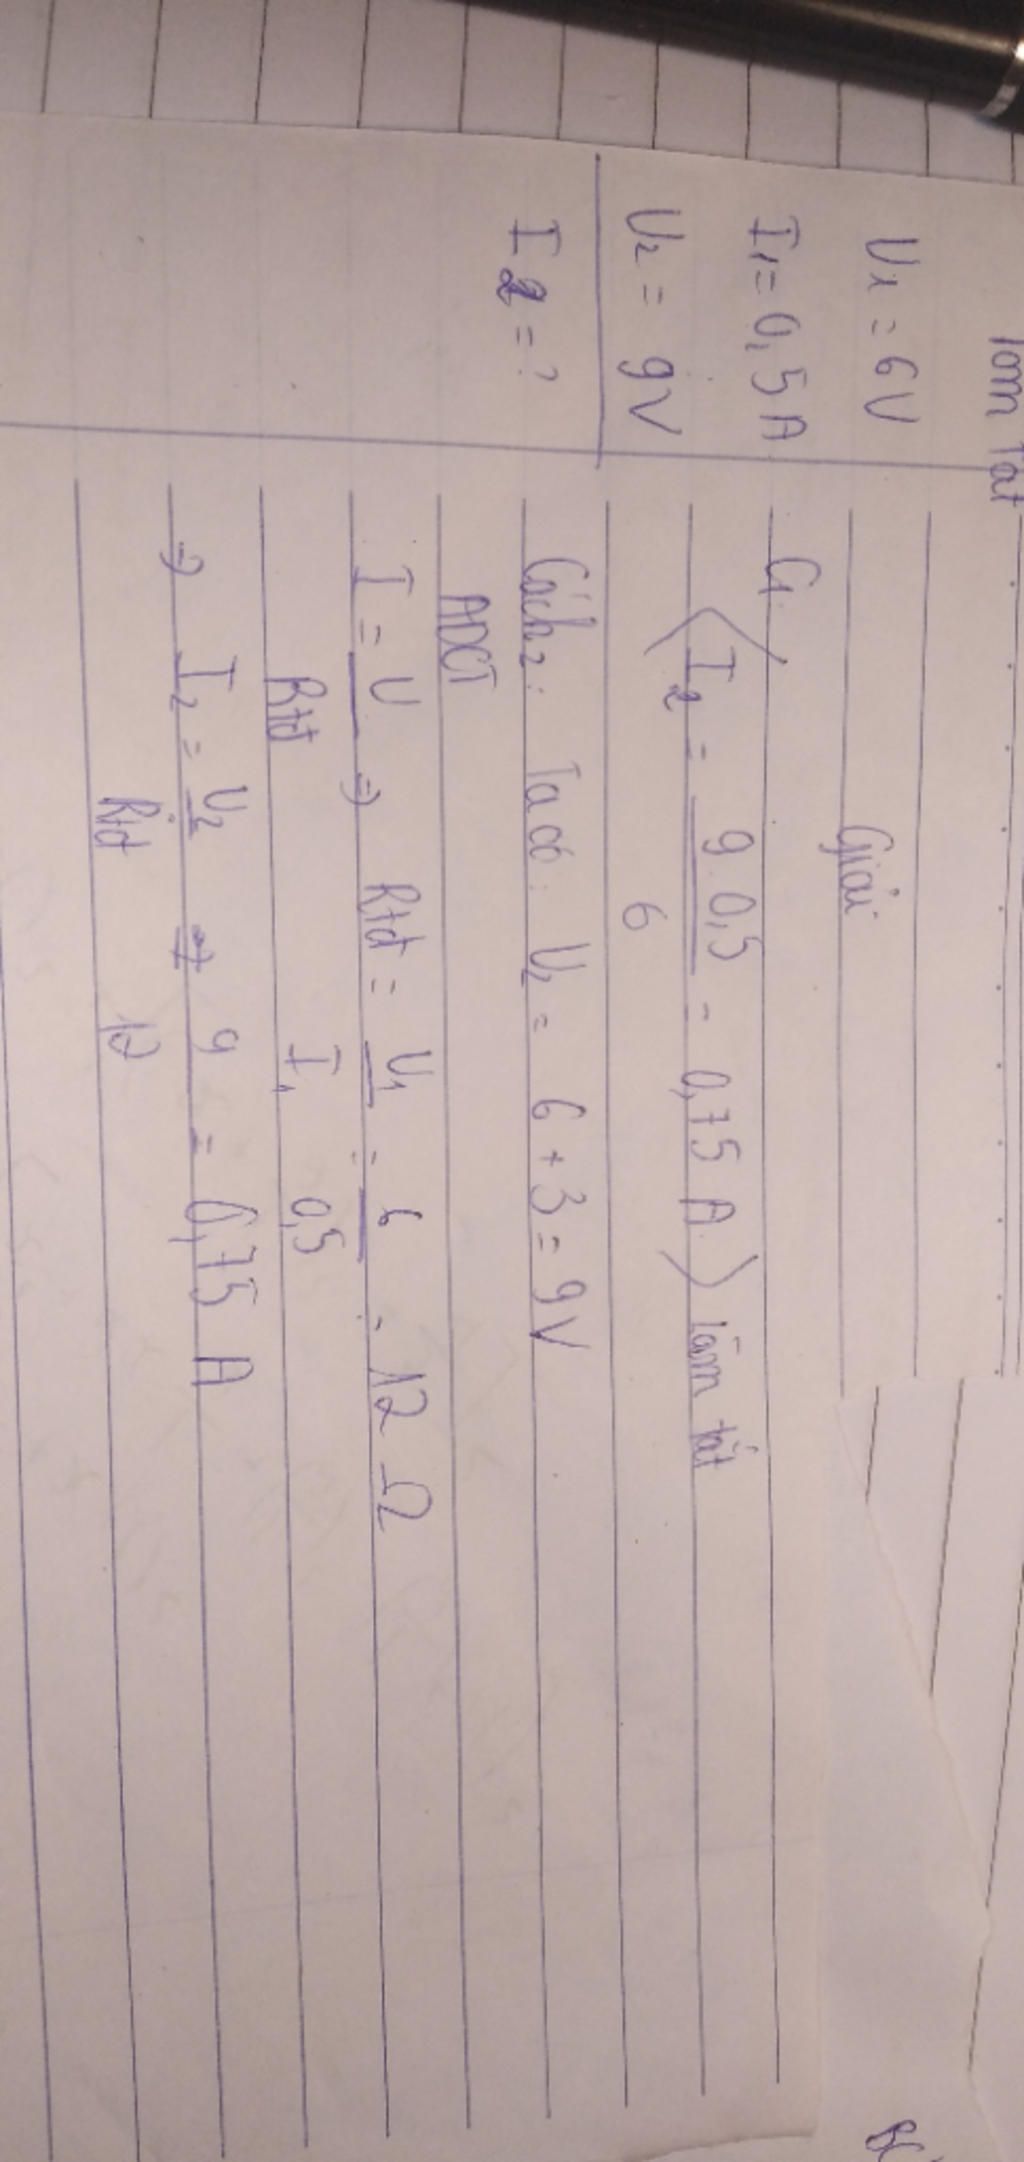 Tóm Tắt
U1 = 6V
I1 = 0,5A
U2 = 9V
I2 = ?
Giải
C1
I2 = 9.0,5 / 6 = 0,75 A làm tắt
Cách2: Ta có: U2 = 6 + 3 = 9V
ADCT
I = U / Rtđ => Rtđ = U1 / I1 = 6 / 0,5 = 12 Ω
=> I2 = U2 / Rtđ => 9 / 12 = 0,75 A